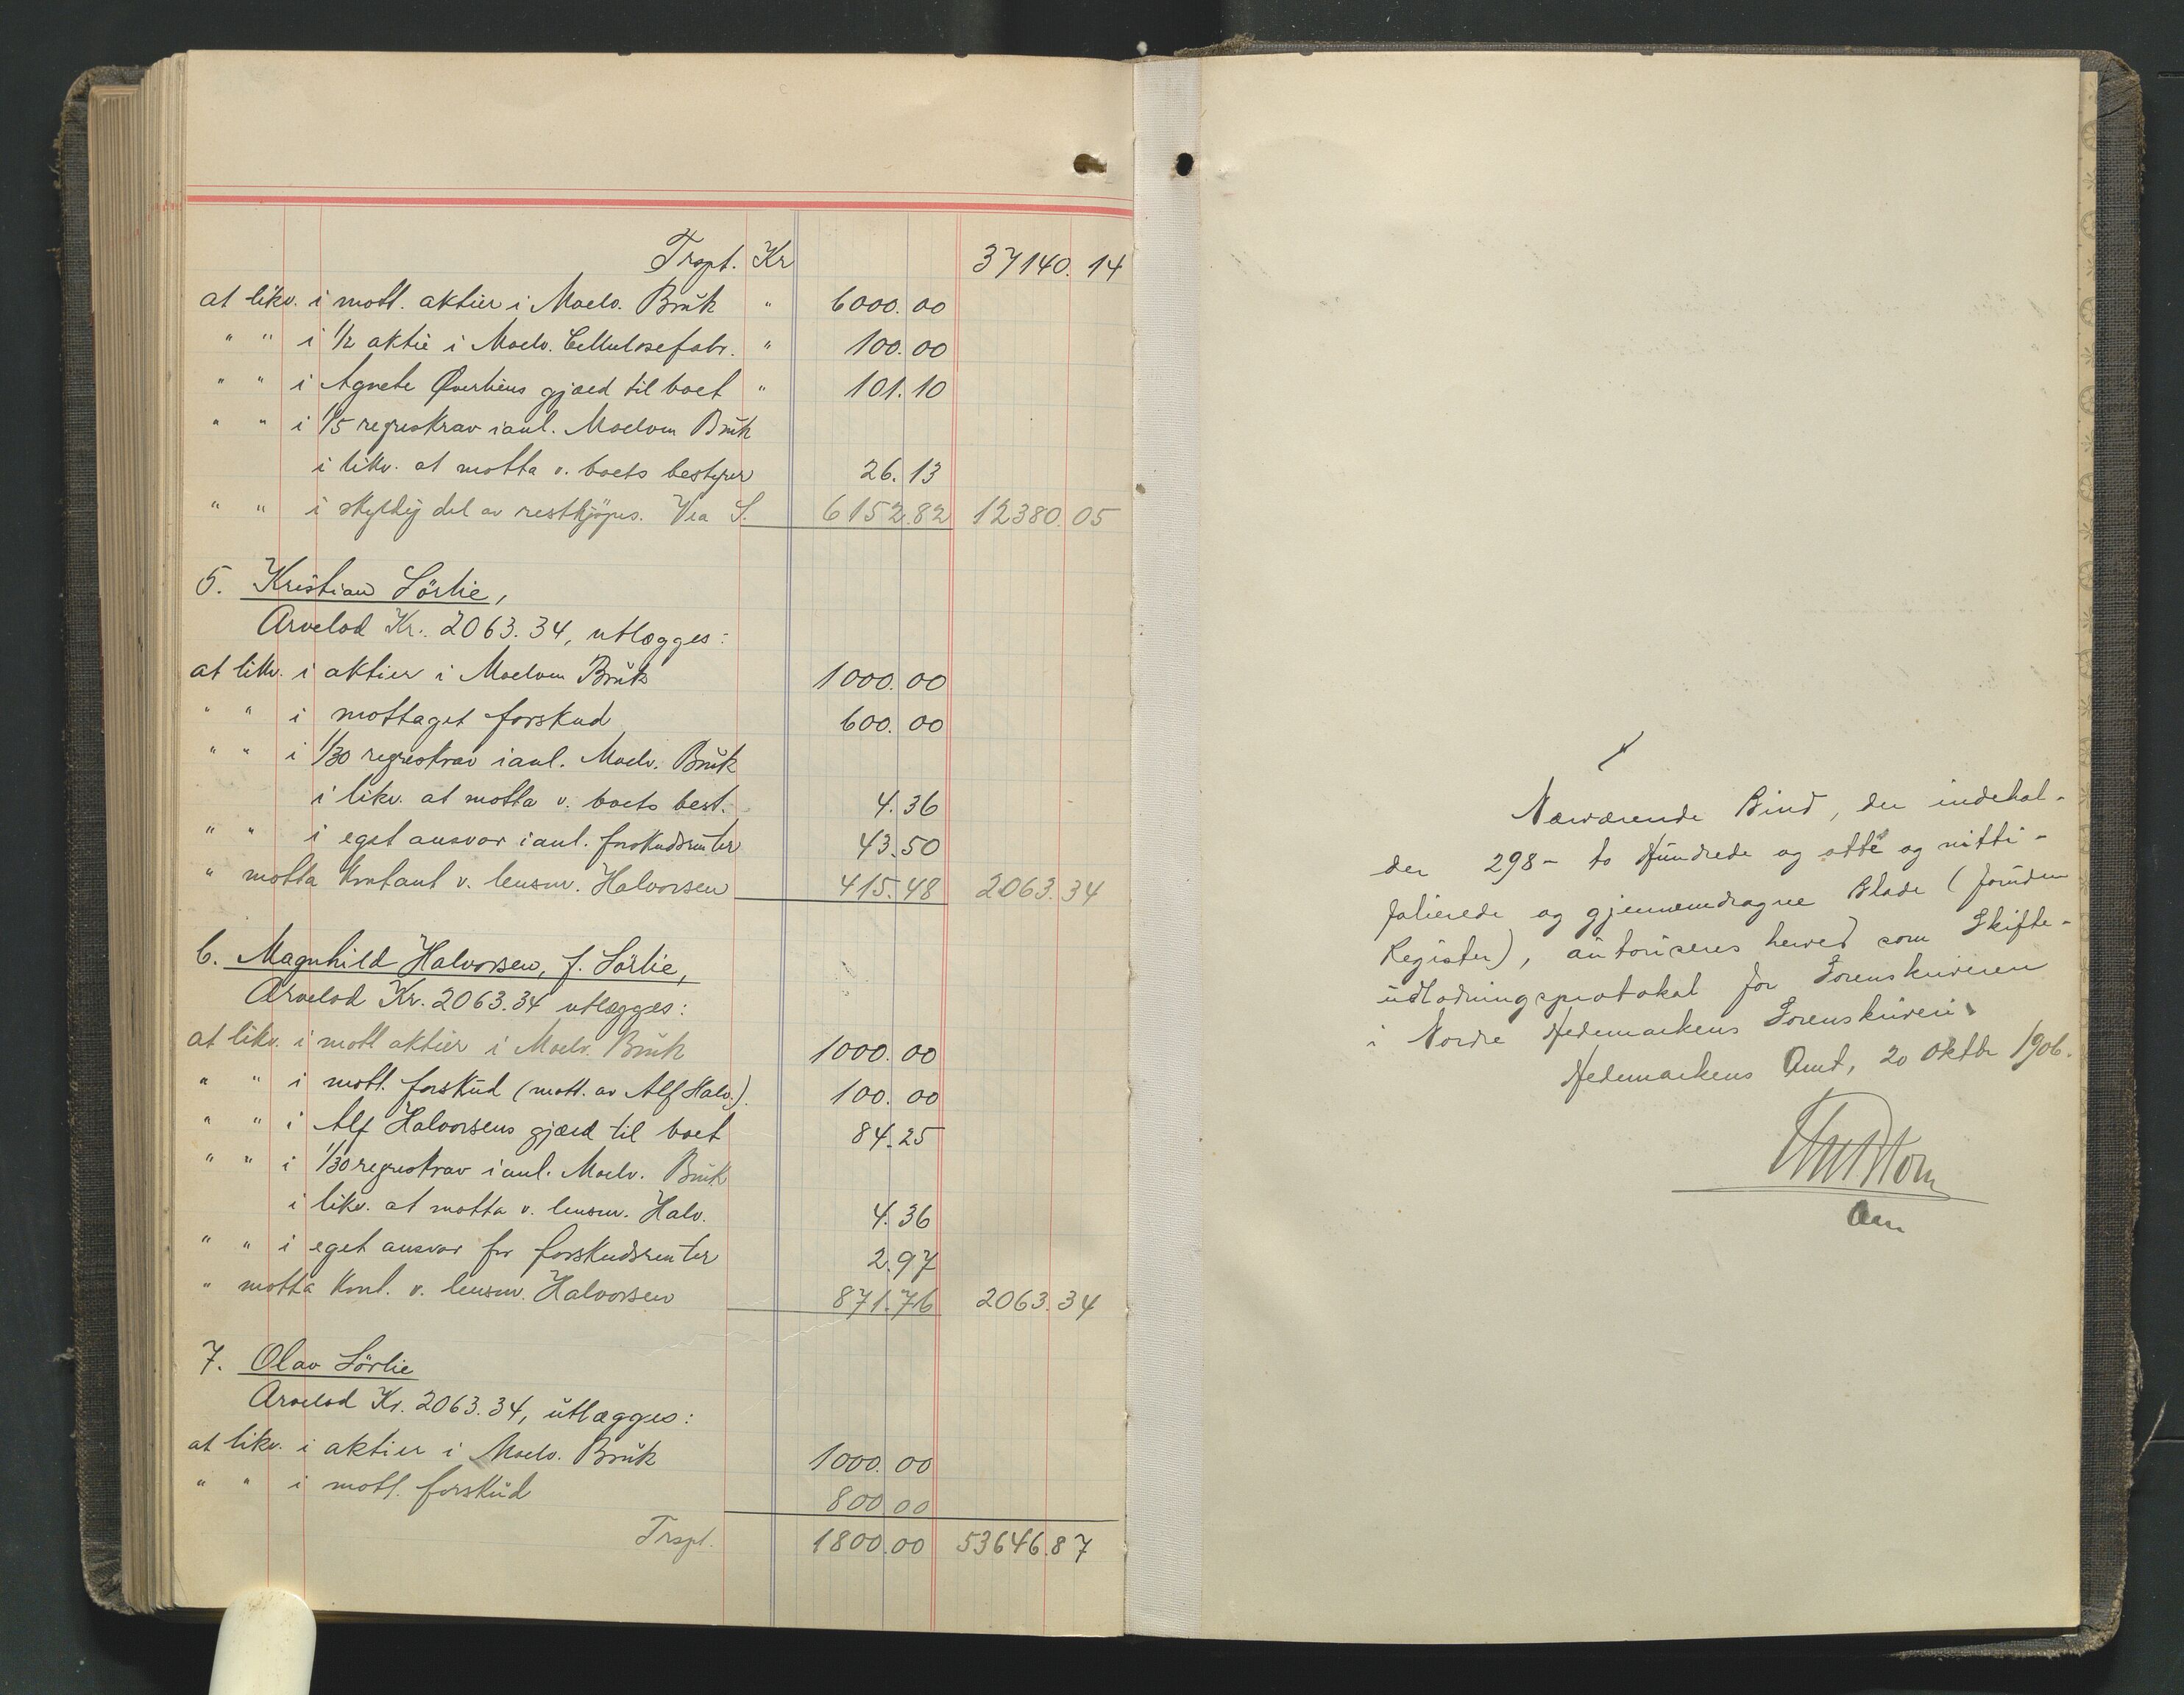 Trspt. Kr 37140.14
at likv. i mott. aktier i Moelv. Bruk " 6000.00
" " i 1/2 aktie i Moelv. Cellulosefabr. " 100.00
" " i Agnete Øverliens gjæld til boet " 101.10
" " i 1/5 regreskrav i anl. Moelven Bruk
i likv. at motta v. boets bestyrer 26.13
" " i skyldig del av restkjøpes. Vea S. 6152.82 12380.05
5. Kristian Sörlie,
Arvelod Kr. 2063.34, utlægges:
at likv. i aktier i Moelven Bruk 1000.00
" " i mottaget forskud 600.00
" " i 1/30 regreskrav i anl. Moelv. Bruk
i likv. at motta v. boets best. 4.36
" " i eget ansvar i anl. forskudsrenter 43.50
" motta kontant v. lensm. Halvorsen 415.48 2063.34
6. Magnhild Halvorsen, f. Sörlie,
Arvelod Kr. 2063.34 utlægges:
at likv. i mott aktier i Moelv. Bruk 1000.00
" " i mott. forskud (mott. av Alf Halv.). 100.00
" " i Alf Halvorsens gjæld til boet 84.25
" " i 1/30 regreskrav i anl. Moelv. Bruk
i likv. at motta v. lensm. Halv. 4.36
" " i eget ansvar for forskudsrenter 2.97
" motta kont. v. lensm. Halvorsen 871.76 2063.34
7. Olav Sörlie
Arvelod Kr. 2063.34, utlægges:
at likv. i aktier i Moelv. Bruk 1000.00
" " i mott. forskud 800.00
Trspt. 1800.00 53646.87
Nærværende Bind, der indehol-
der 298 - to Hundrede og otte og nitti -
folierede og gjennemdragne Blade (foruden
Register), autoriseres herved som Skifte-
udlodningsprotokol for Sorenskriveren
i Nordre Hedemarkens Sorenskriveri.
Hedemarkens Amt, 20 Oktbr 1906.